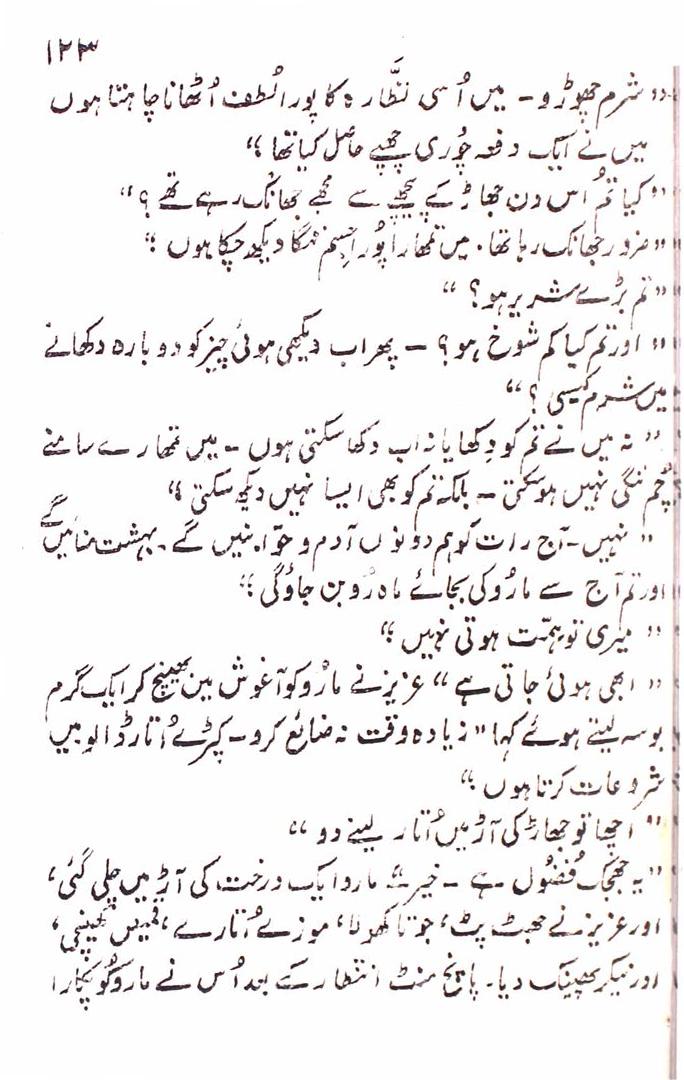 ۱۲۳
"شرم چھوڑو۔ میں اُسی نظّارہ کا پورا لُطف اُٹھانا چاہتا ہوں
میں نے ایک دفعہ چُوری چھپے حاصل کیا تھا؟"
"کیا تُم اس دن جھاڑ کے پیچھے سے مجھے جھانک رہے تھے؟"
"ضرور جھانک رہا تھا۔ میں تمھارا پُورا جسم ننگا دیکھ چکا ہوں؟"
"تم بڑے شریر ہو؟"
"اور تم کیا کم شوخ ہو؟ — پھر اب دیکھی ہوئی چیز کو دوبارہ دکھانے
میں شرم کیسی؟"
"نہ میں نے تم کو دِکھایا نہ اب دکھا سکتی ہوں — میں تمھارے سامنے
ننگی نہیں ہو سکتی — بلکہ تم کو بھی ایسا نہیں دیکھ سکتی؟"
"نہیں۔ آج رات کو ہم دونوں آدم و حوّا بنیں گے۔ بہشت منائیں گے
اور تم آج سے مارُو کی بجائے ماہ رُو بن جاؤگی؟"
"میری تو ہمّت ہوتی نہیں؟"
"ابھی ہوئی جاتی ہے" عزیز نے مارُو کو آغوش میں بھینچ کر ایک گرم
بوسہ لیتے ہوئے کہا "زیادہ وقت نہ ضائع کرو — کپڑے اُتار ڈالو میں
شروعات کرتا ہوں؟"
"اچھا تو جھاڑ کی آڑ میں اُتار لینے دو"
"یہ جھجک فُضُول ہے — خیر" مارو ایک درخت کی آڑ میں چلی گئی،
اور عزیز نے جھٹ پٹ، جوتا کھولا، موزے اُتارے، قمیص کھینچی،
اور نیکر پھینک دیا۔ پانچ منٹ انتظار کے بعد اُس نے مارو کو پکارا